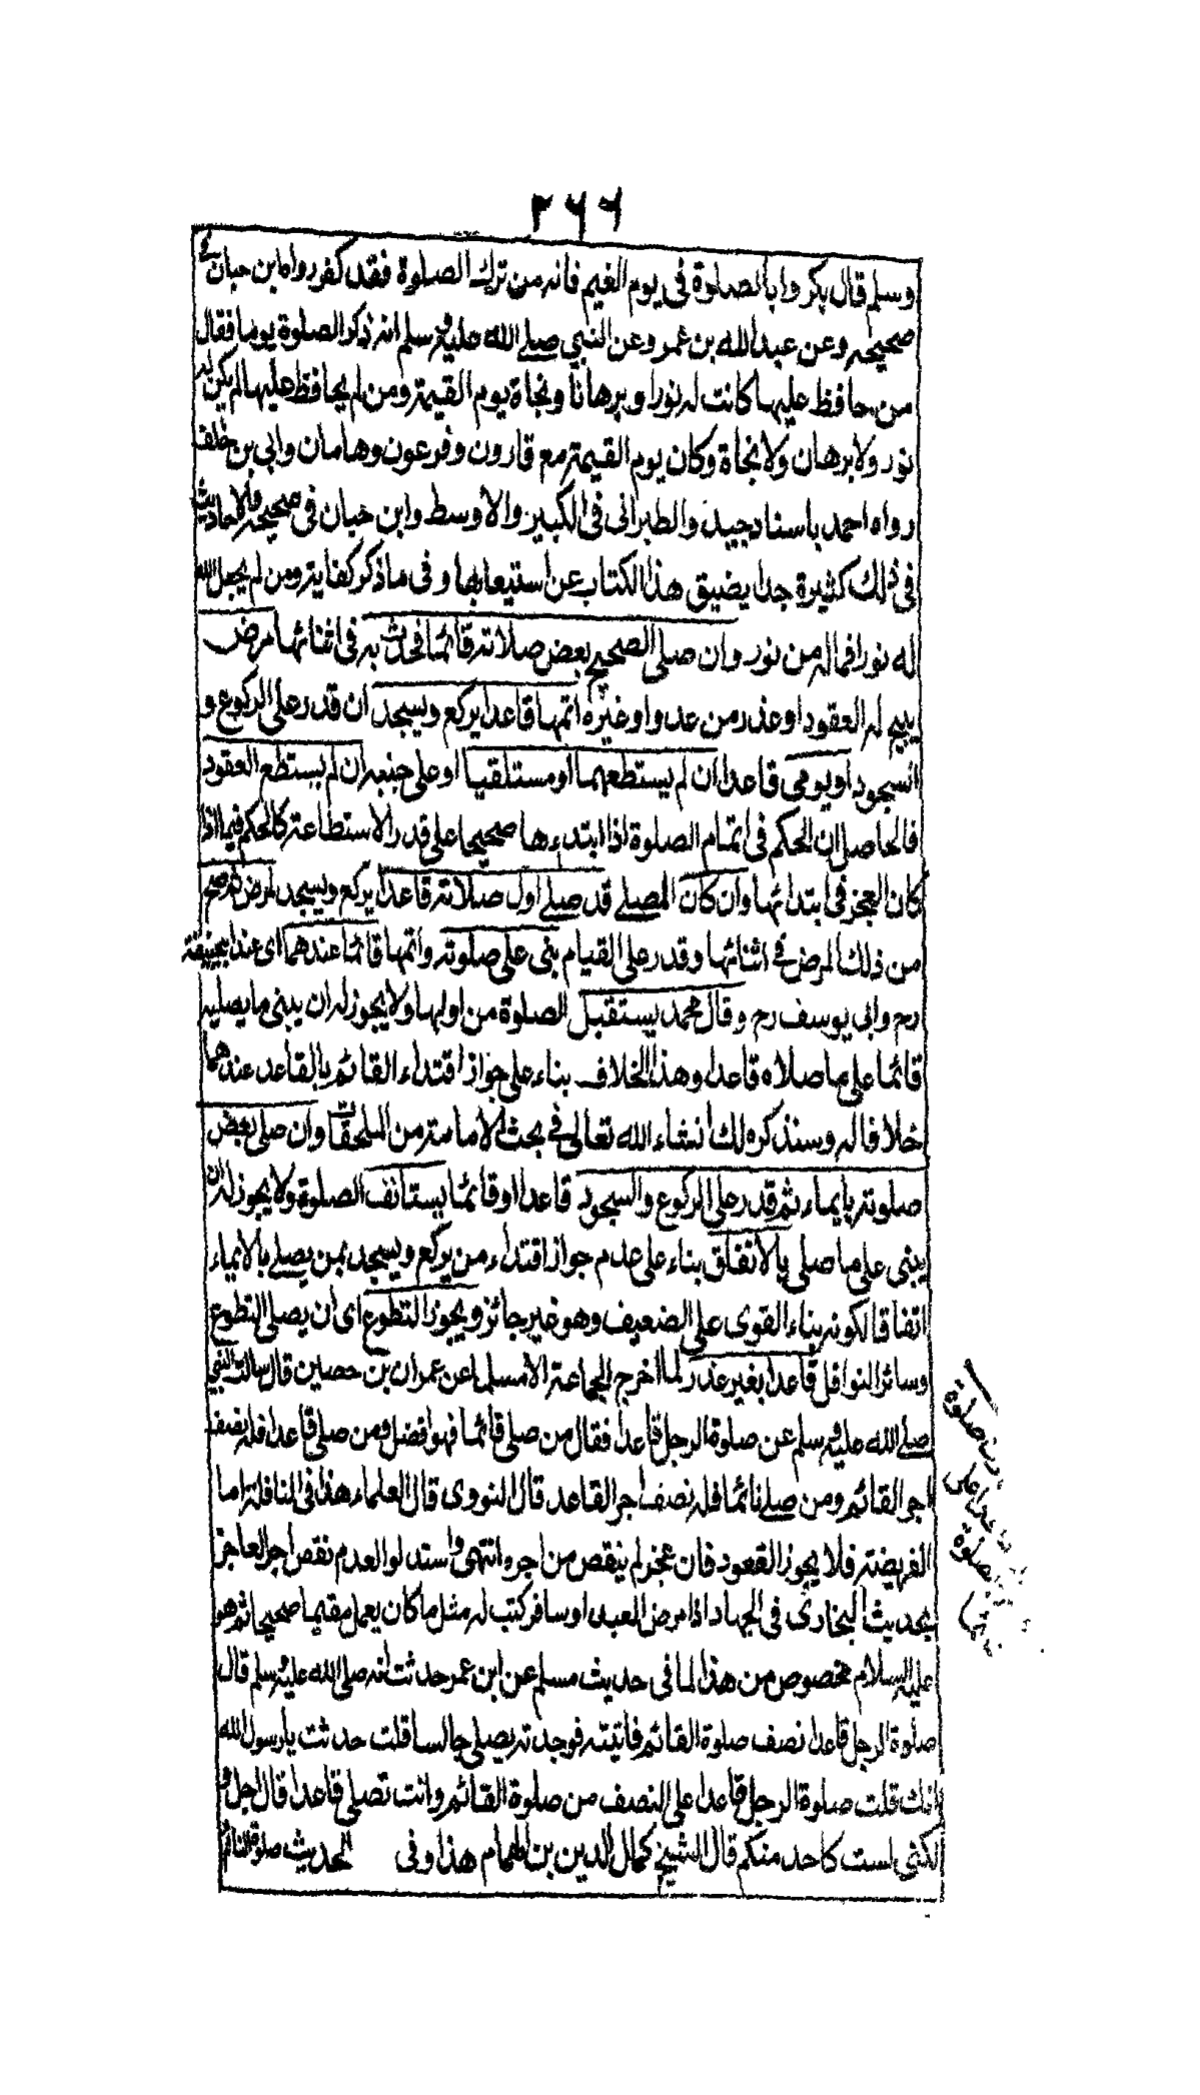 ٢٦٦
وسلم قال بكروا بالصلوة فى يوم الغيم فانه من ترك الصلوة فقد كفر رواه ابن حبان فى
صحيحه وعن عبد الله بن عمرو عن النبي صلى الله عليه وسلم انه ذكر الصلوة يوما فقال
من حافظ عليها كانت له نورا وبرهانا ونجاة يوم القيمة ومن لم يحافظ عليها لم يكن له
نور ولا برهان ولا نجاة وكان يوم القيمة مع قارون وفرعون وهامان وابي بن خلف
رواه احمد باسناد جيد والطبرانى فى الكبير والاوسط وابن حبان فى صحيحه والاحاديث
فى ذلك كثيرة جدا يضيق هذا الكتاب عن استيعابها وفى ما ذكر كفاية ومن لم يجعل الله
له نورا فما له من نور وان صلى الصحيح بعض صلاته قائما فحدث به فى اثنائها مرض
يبيح له العقود او عذر من عدو او غيره اتمها قاعدا يركع ويسجد ان قدر على الركوع و
السجود او يومى قاعدا ان لم يستطعهما او مستلقيا او على جنبه ان لم يستطع العقود
فالحاصل ان الحكم فى اتمام الصلوة اذا ابتدءها صحيحا على قدر الاستطاعة كالحكم فيما اذا
كان العجز فى ابتدائها وان كان المصلى قد صلى اول صلاته قاعدا يركع ويسجد لمرض ثم صح
من ذلك المرض فى اثنائها وقدر على القيام بنى على صلوته واتمها قائما عندهما اى عند ابيحنيفة
رح وابى يوسف رح وقال محمد يستقبل الصلوة من اولها ولا يجوز له ان يبنى ما يصليه
قائما على ما صلاه قاعدا وهذا الخلاف بناء على جواز اقتداء القائم بالقاعد عندهما
خلافا له وسنذكره لك انشاء الله تعالى فى بحث الامامة من الملحقات وان صلى بعض
صلوته بايماء ثم قدر على الركوع والسجود قاعدا او قائما يستانف الصلوة ولا يجوز له ان
يبنى على ما صلى بالاتفاق بناء على عدم جواز اقتداء من يركع ويسجد بمن يصلى بالايماء
اتفاقا لكونه بناء القوى على الضعيف وهو غير جائز ويجوز التطوع اى ان يصلى التطوع
وسائر النوافل قاعدا بغير عذر لما اخرج الجماعة الا مسلما عن عمران بن حصين قال سالت النبي
صلى الله عليه وسلم عن صلوة الرجل قاعدا فقال من صلى قائما فهو افضل ومن صلى قاعدا فله نصف
اجر القائم ومن صلى نائما فله نصف اجر القاعد قال النووى قال العلماء هذا فى النافلة اما
الفريضة فلا يجوز القعود فان عجز لم ينقص من اجره انتهى واستدلوا لعدم نقص اجر العاجز
بحديث البخارى فى الجهاد اذا مرض العبد او سافر كتب له مثل ما كان يعمل مقيما صحيحا ثم هو
عليه السلام مخصوص من هذا لما فى حديث مسلم عن ابن عمر حدثت انه صلى الله عليه وسلم قال
صلوة الرجل قاعدا نصف صلوة القائم فاتيته فوجدته يصلى جالسا قلت حدثت يا رسول الله
انك قلت صلوة الرجل قاعدا على النصف من صلوة القائم وانت تصلى قاعدا قال اجل و
لكنى لست كاحد منكم قال الشيخ كمال الدين بن الهمام هذا وفى الحديث صلوة النائم
صلوة